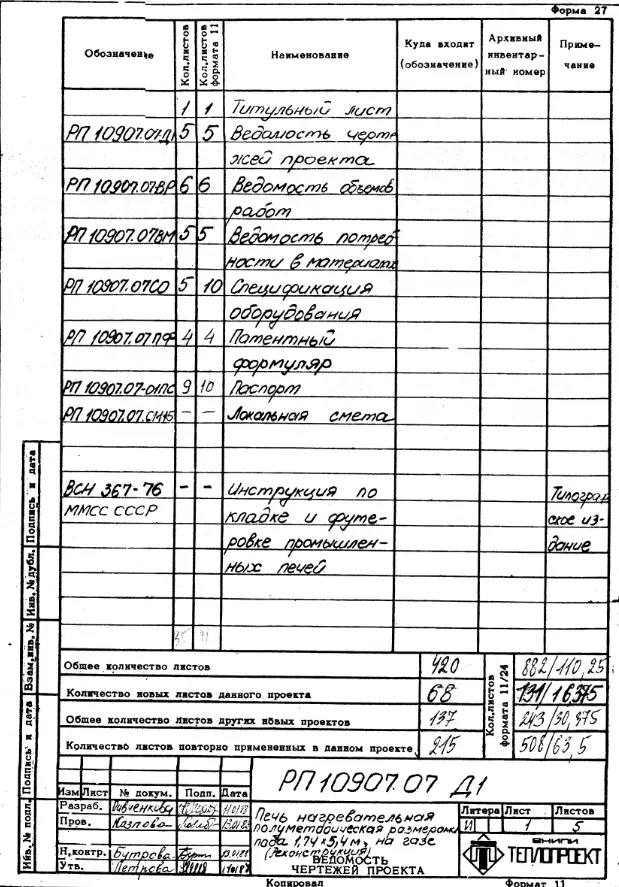 Форма 27
Обозначение Кол.листов Кол.листов формата 11 Наименование Куда входит (обозначение) Архивный инвентарный номер Примечание
1 1 Титульный лист
РП 10907.07Д1 5 5 Ведомость черте-
жей проекта
РП 10907.07ВР 6 6 Ведомость объемов
работ
РП 10907.07ВМ 5 5 Ведомость потреб
ности в материалах
РП 10907.07СО 5 10 Спецификация
оборудования
РП 10907.07ПФ 4 4 Патентный
формуляр
РП 10907.07-01ПС 9 10 Паспорт
РП 10907.07.СМ15 – – Локальная смета
ВСН 367-76 – – Инструкция по Типограф
ММСС СССР кладке и футе- ское из-
ровке промышлен- дание
ных печей
35 41
Общее количество листов 420 882/110,25
Количество новых листов данного проекта 68 131/16375
Общее количество листов других новых проектов 137 243/30,875
Количество листов повторно примененных в данном проекте 215 508/63,5
Кол.листов формата 11/24
РП10907.07 Д1
Изм Лист № докум. Подп. Дата
Разраб.
Пров. Козлова
Н.контр. Бутрова
Утв. Петрова
Печь нагревательная
полуметодическая размерами
пода 1,74×5,4м, на газе
(Реконструкция)
ВЕДОМОСТЬ
ЧЕРТЕЖЕЙ ПРОЕКТА
Литера Лист Листов
И 1 5
ВНИПИ
ТЕПЛОПРОЕКТ
Копировал Формат 11
Инв.№ подл. Подпись и дата Взам.инв.№ Инв.№ дубл. Подпись и дата